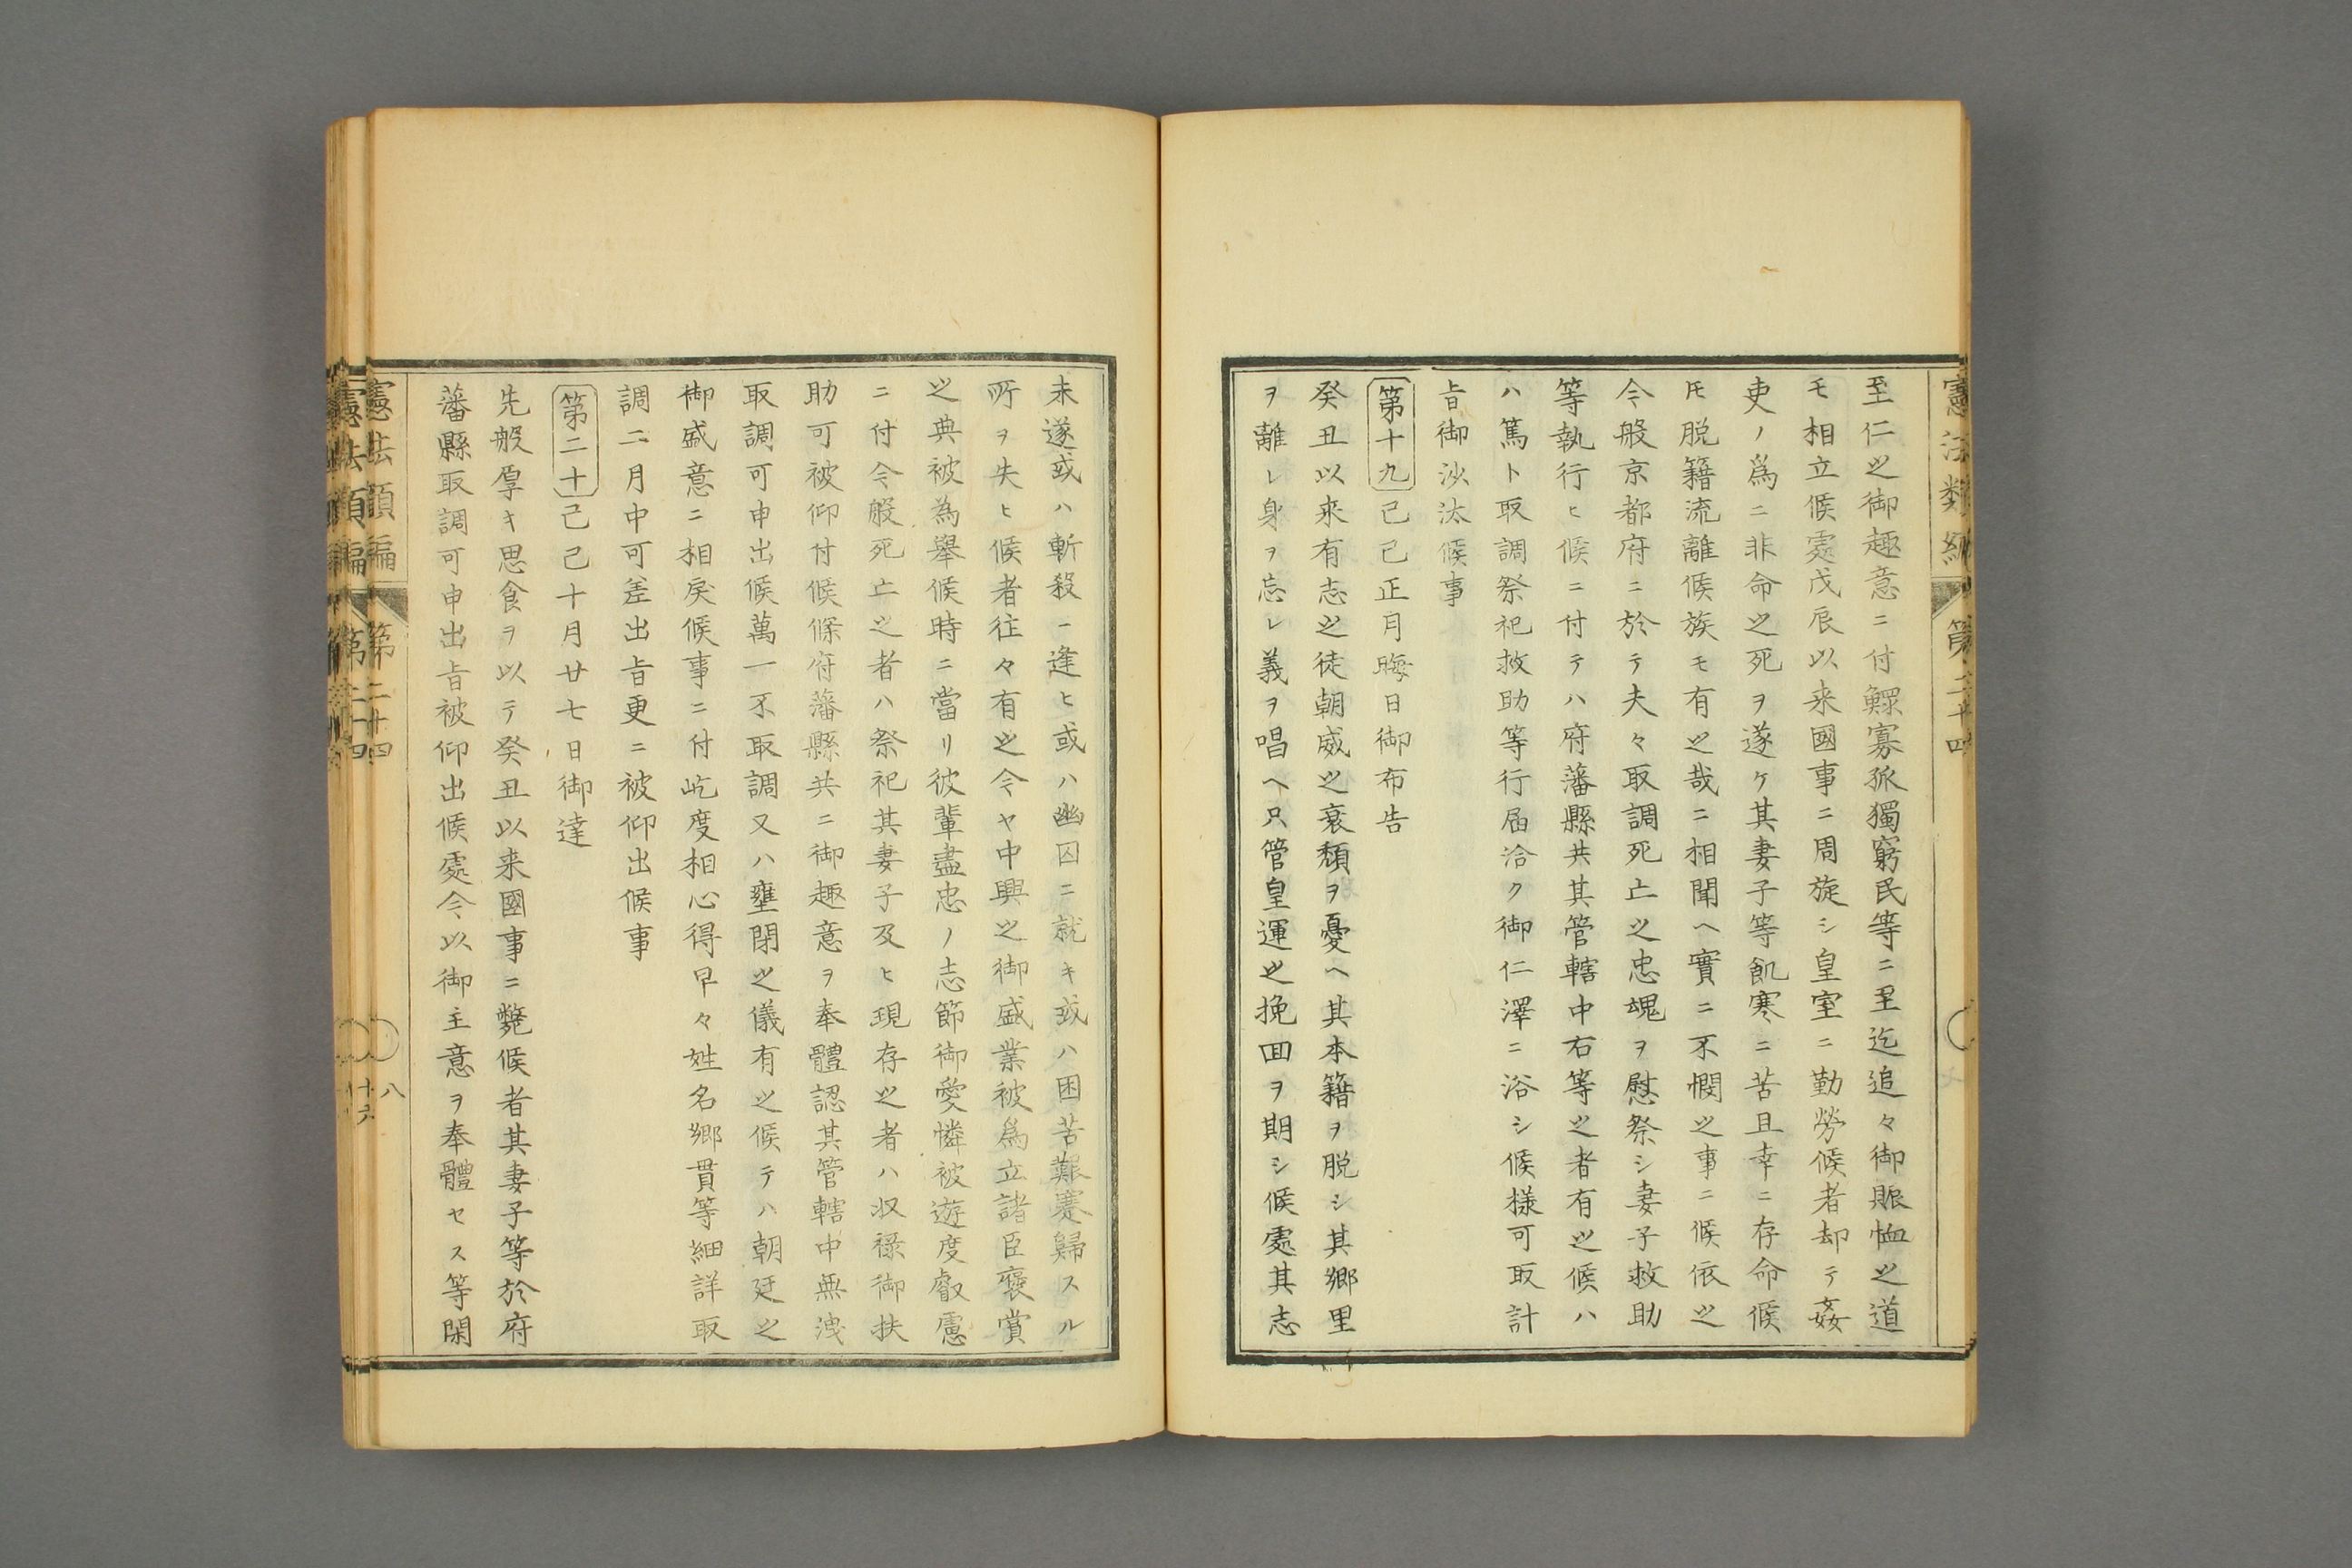 至仁之御趣意ニ付鰥寡孤獨窮民等ニ至迄追々御賑恤之道
モ相立候處戊辰以来國事ニ周旋シ皇室ニ勤勞候者却テ姦
吏ノ爲ニ非命之死ヲ遂ケ其妻子等飢寒ニ苦且幸ニ存命候
モ脱籍流離候族モ有之哉ニ相聞ヘ實ニ不憫之事ニ候依之
今般京都府ニ於テ夫々取調死亡之忠魂ヲ慰祭シ妻子救助
等執行ヒ候ニ付テハ府藩縣共其管轄中右等之者有之候ハ
ハ篤ト取調祭祀救助等行届洽ク御仁澤ニ浴シ候様可取計
旨御沙汰候事
第十九 己巳正月晦日御布告
癸丑以来有志之徒朝威之衰頽ヲ憂ヘ其本籍ヲ脱シ其郷里
ヲ離レ身ヲ忘レ義ヲ唱ヘ只管皇運之挽回ヲ期シ候處其志
未遂或ハ斬殺ニ逢ヒ或ハ幽囚ニ就キ或ハ困苦艱蹇歸スル
所ヲ失ヒ候者往々有之今ヤ中興之御盛業被爲立諸臣褒賞
之典被為舉候時ニ當リ彼輩盡忠ノ志節御愛憐被遊度叡慮
ニ付今般死亡之者ハ祭祀其妻子及ヒ現存之者ハ収禄御扶
助可被仰付候條府藩縣共ニ御趣意ヲ奉體認其管轄中無洩
取調可申出候萬一不取調又ハ壅閉之儀有之候テハ朝廷之
御盛意ニ相戻候事ニ付屹度相心得早々姓名郷貫等細詳取
調二月中可差出旨更ニ被仰出候事
第二十 己巳十月廿七日御達
先般厚キ思食ヲ以テ癸丑以来國事ニ斃候者其妻子等於府
藩縣取調可申出旨被仰出候處今以御主意ヲ奉體セス等閑
憲法類編 第二十四
八